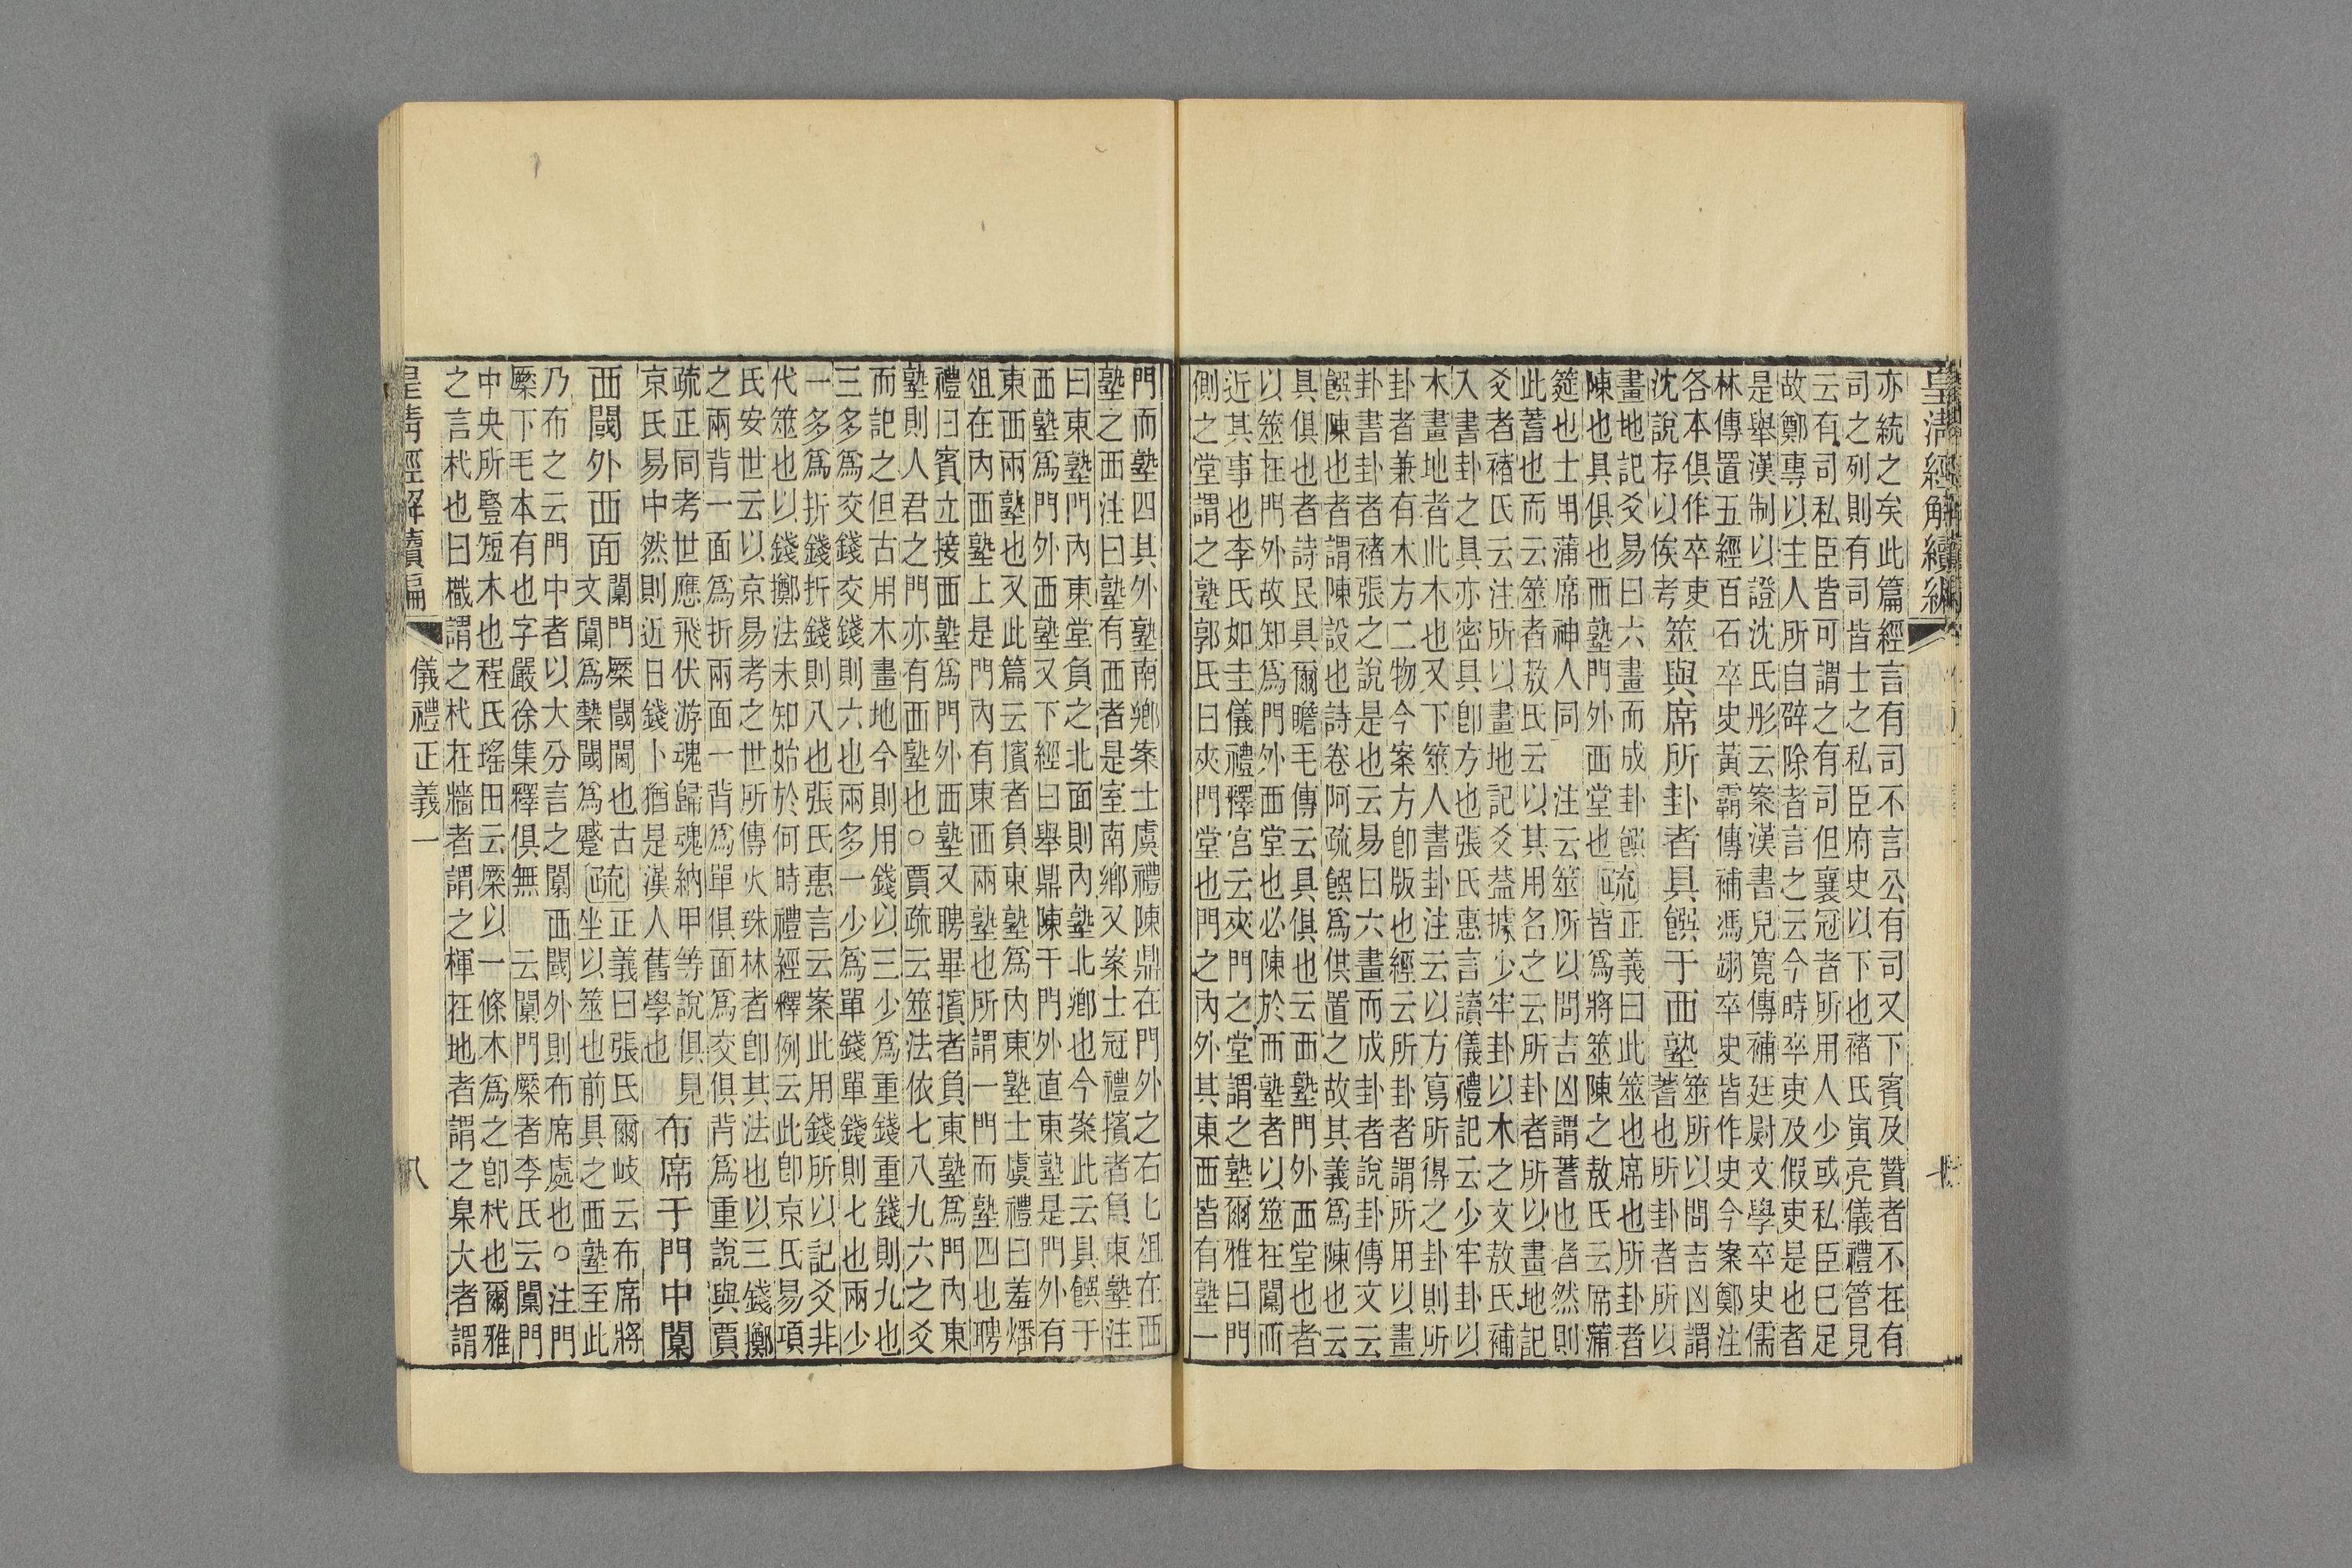 皇清經解續編
七
亦統之矣此篇經言有司不言公有司又下賓及贊者不在有
司之列則有司皆士之私臣府史以下也褚氏寅亮儀禮管見
云有司私臣皆可謂之有司但襄冠者所用人少或私臣已足
故鄭專以主人所自辟除者言之云今時卒吏及假吏是也者
是舉漢制以證沈氏彤云案漢書兒寬傳補廷尉文學卒史儒
林傳置五經百石卒史黃霸傳補馮翊卒史皆作史今案鄭注
各本俱作卒吏
沈說存以俟考
筮與席所卦者具饌于西塾
筮所以問吉凶謂
蓍也所卦者所以
畫地記爻易曰六畫而成卦饌
陳也具俱也西塾門外西堂也
疏正義曰此筮也席也所卦者
皆爲將筮陳之敖氏云席蒲
筵也士用蒲席神人同
注云筮所以問吉凶謂蓍也者然則
此蓍也而云筮者敖氏云以其用名之云所卦者所以畫地記
爻者褚氏云注所以畫地記爻葢據少牢卦以木之文敖氏補
入書卦之具亦密具卽方也張氏惠言讀儀禮記云少牢卦以
木畫地者此木也又下筮人書卦注云以方寫所得之卦則所
卦者兼有木方二物今案方卽版也經云所卦者謂所用以畫
卦書卦者褚張之說是也云易曰六畫而成卦者說卦傳文云
饌陳也者謂陳設也詩卷阿疏饌爲供置之故其義爲陳也云
具俱也者詩民具爾瞻毛傳云具俱也云西塾門外西堂也者
以筮在門外故知爲門外西堂也必陳於西塾者以筮在闑西
近其事也李氏如圭儀禮釋宮云夾門之堂謂之塾爾雅曰門
側之堂謂之塾郭氏曰夾門堂也門之內外其東西皆有塾一
門而塾四其外塾南鄉案士虞禮陳鼎在門外之右匕俎在西
塾之西注曰塾有西者是室南鄉又案士冠禮擯者負東塾注
曰東塾門內東堂負之北面則內塾北鄉也今案此云具饌于
西塾爲門外西塾又下經曰舉鼎陳于門外直東塾是門外有
東西兩塾也又此篇云擯者負東塾爲內東塾士虞禮曰羞燔
俎在內西塾上是門內有東西兩塾也所謂一門而塾四也聘
禮曰賓立接西塾爲門外西塾又聘畢擯者負東塾爲門內東
塾則人君之門亦有西塾也○賈疏云筮法依七八九六之爻
而記之但古用木畫地今則用錢以三少爲重錢重錢則九也
三多爲交錢交錢則六也兩多一少爲單錢單錢則七也兩少
一多爲折錢折錢則八也張氏惠言云案此用錢所以記爻非
代筮也以錢擲法未知始於何時禮經釋例云此卽京氏易項
氏安世云以京易考之世所傳火珠林者卽其法也以三錢擲
之兩背一面爲折兩面一背爲單俱面爲交俱背爲重說與賈
疏正同考世應飛伏游魂歸魂納甲等說俱見
京氏易中然則近日錢卜猶是漢人舊學也
布席于門中闑
西閾外西面
闑門橜閾閫也古
文闑爲槷閾爲蹙
疏正義曰張氏爾岐云布席將
坐以筮也前具之西塾至此
乃布之云門中者以大分言之闑西閾外則布席處也○注門
橜下毛本有也字嚴徐集釋俱無
云闑門橜者李氏云闑門
中央所豎短木也程氏瑤田云橜以一條木爲之卽杙也爾雅
之言杙也曰樴謂之杙在牆者謂之楎在地者謂之臬大者謂
皇清經解續編
儀禮正義一
八